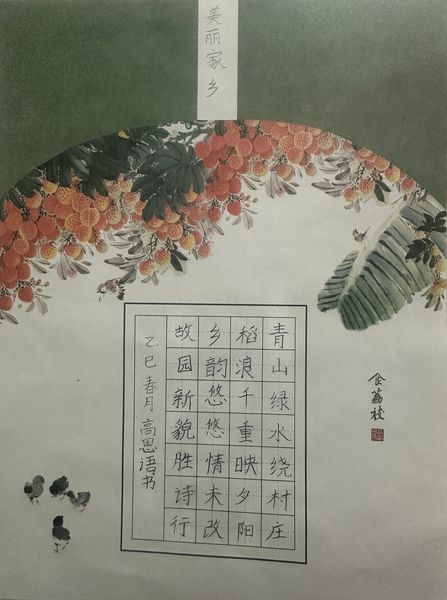 美丽家乡
青山绿水绕村庄
稻浪千重映夕阳
乡韵悠悠情未改
故园新貌胜诗行
乙巳春月高思语书
金荔枝